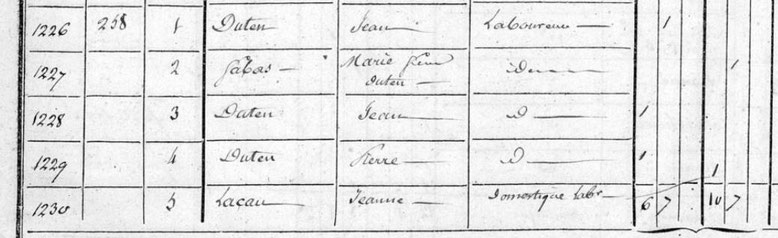 1226 258 1 Duten Jean Laboureur 1
1227 2 Gabas Marie fem
Duten id 1
1228 3 Duten Jean id 1
1229 4 Duten Pierre id 1
1230 5 Lacau Jeanne Domestique Labr 1
6 7 10 7